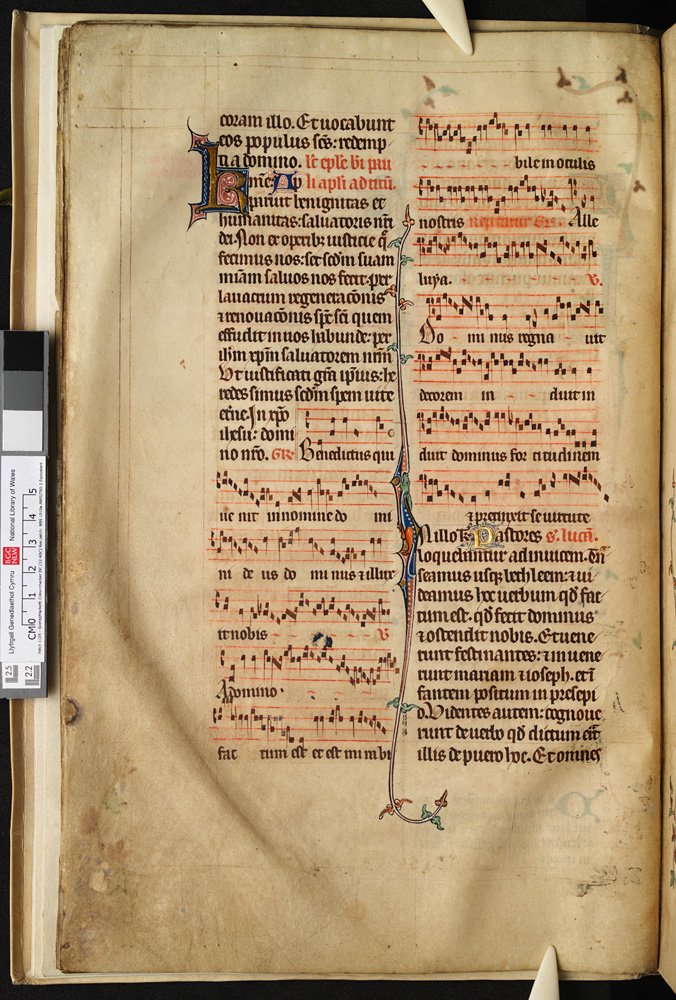 coram illo. Et uocabunt
eos populus scs: redemp
ti a domino. lc eple bi pau
li apli ad titū.
K mē: Ap
paruit benignitas et
humanitas: saluatoris nri
dei. Non ex operib; iusticie q̄
fecimus nos: set scdm suam
miam saluos nos fecit: per
lauacrum regeneracōnis
⁊ renouacōnis sp̄c sci quem
effudit in nos habunde: per
ihm xpm saluatorem nrm
Vt iustificati grā ipius: he
redes simus scdm spem uite
et̄ne. In xpō
ihesu: domi
no nrō. Gr̄. Benedictus qui
ue nit in nomine do mi
ni de us do mi nus ⁊ illux
it nobis V.
A domino.
fac tum est et est mirabi
bile in oculis
nostris Alle
luya. V.
Do mi nus regna uit
decorem in duit in
duit dominus for ti tudinem
⁊ precinxit se uirtute
In illo t̄. Pastores s. lucā.
loquebantur ad inuicem. Tn̄
seamus usq; bethleem: ⁊ ui
deamus hoc uerbum qd fac
tum est. qd fecit dominus
⁊ ostendit nobis. Et uene
runt festinantes: ⁊ inuene
runt mariam ⁊ ioseph. et ī
fantem positum in presepi
o. Videntes autem: cognoue
runt de uerbo qd dictum erat
illis de puero hoc. Et omnes
Llyfrgell Genedlaethol Cymru National Library of Wales
LlGC
NLW
CM 0 1 2 3 4 5
2.5
2.2